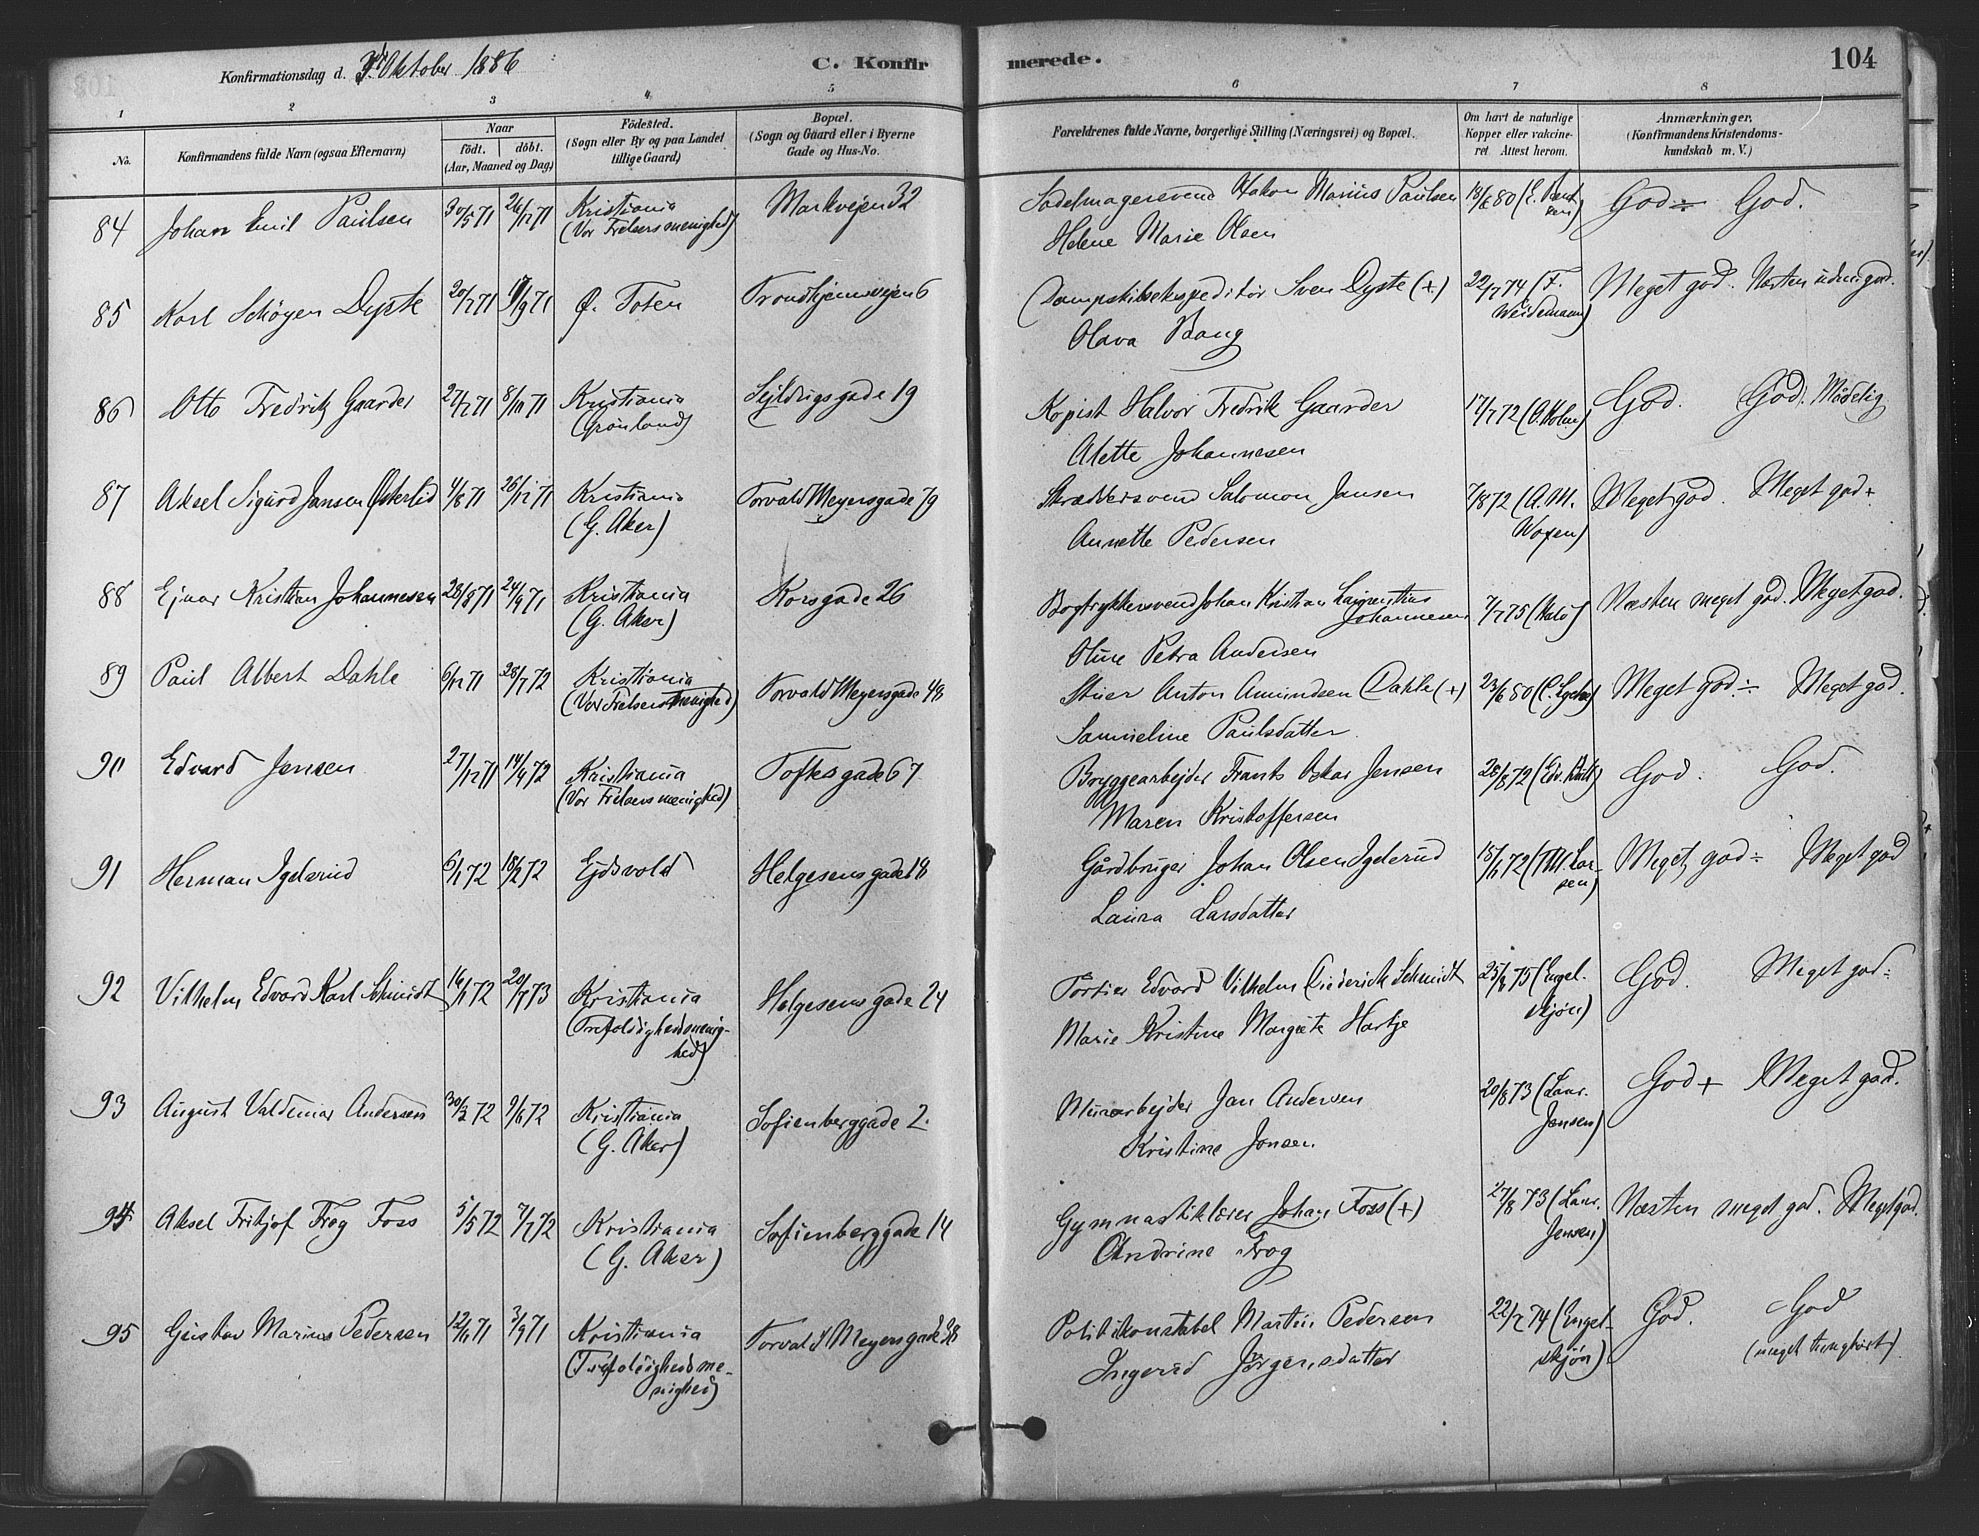 Konfirmationsdag d. 3die Oktober 1886
C. Konfirmerede.
104
1 2 3 4 5 6 7 8
No.
Konfirmandens fulde Navn (ogsaa Efternavn)
Naar
födt. döbt.
(Aar, Maaned og Dag)
Födested.
(Sogn eller By og paa Landet
tillige Gaard)
Bopæl.
(Sogn og Gaard eller i Byerne
Gade og Hus-No.
Forældrenes fulde Navne, borgerlige Stilling (Næringsvei) og Bopæl.
Om havt de naturlige
Kopper eller vakcine-
ret Attest herom.
Anmærkninger.
(Konfirmandens Kristendoms-
kundskab m. V.)
84 Johan Emil Paulsen 30/5 71 26/12 71 Kristiania Markvejen 32 Sadelmagersvend Hakon Marius Paulsen 18/6 80 God ÷ God.
(Vor Frelsers menighed)
Helene Marie Olsen
85 Karl Schöyen Dyste 20/7 71 17/9 71 Ø. Toten Trondhjemsvejen 6 Dampskibsekspeditör Sven Dyste (+) 22/7 74 (F. Weidemann) Meget god. Næsten udm. god.
Olava Haang
86 Otto Fredrik Gaarder 27/7 71 8/10 71 Kristiania Sejldugsgade 19 Kopist Halvor Fredrik Gaarder 17/7 72 (A. Holm) God. God. Mådelig
(Grönland)
Alette Johannesen
87 Aksel Sigurd Jansen Österlid 4/8 71 26/12 71 Kristiania Torvald Meyersgade 79 Skræddersvend Salomon Jansen 7/8 72 (A. M. Meget god. Meget god +
(G. Aker) Annette Pedersen
88 Ejnar Kristian Johannesen 28/8 71 24/9 71 Kristiania Korsgade 26 Bogtrykkersvend Johan Kristian Laurentius Johannesen 7/7 75 Næsten meget god. Meget god.
(G. Aker)
Oline Petra Andersen
89 Paul Albert Dahle 6/12 71 28/7 72 Kristiania Torvald Meyersgade 48 Stuer Anton Amundsen Dahle (+) 23/6 80 Meget god. ÷ Meget god.
(Vor Frelsers menighed)
Samueline Paulsdatter
90 Edvard Jensen 27/12 71 14/4 72 Kristiania Toftesgade 67 Bryggearbejder Frants Oskar Jensen 28/8 72 God. God.
(Vor Frelsers menighed)
Maren Kristoffersen
91 Herman Igelsrud 6/1 72 18/2 72 Ejdsvold Helgesensgade 18 Gårdbruger Johan Olsen Igelsrud 15/11 72 (Th. Lar-
sen) Meget god ÷ Meget god
Laura Larsdatter
92 Vilhelm Edvard Karl Schmidt 16/1 72 20/7 73 Kristiania Helgesensgade 24 Portier Edvard Vilhelm Diederich Schmidt 25/8 75 (Engel-
skjön) God. Meget god ÷
(Trefoldighedsmenig-
hed)
Marie Kristine Margrete Hartje
93 August Valdemar Andersen 30/3 72 9/6 72 Kristiania Sofienberggade 2. Murarbejder Jan Andersen 20/8 73 (Laur.
Jensen) God + Meget god.
(G. Aker) Kristine Jonsen.
94 Aksel Fritjof Frog Foss 5/5 72 7/7 72 Kristiania Sofienberggade 14 Gymnastiklærer Johan Foss (+) 27/8 73 (Laur.
Jensen) Næsten meget god. Meget god.
(G. Aker) Andrine Frog
95 Gustav Marius Pedersen 12/11 71 3/9 71 Kristiania Torvald Meyersgade 38 Politikonstabel Martin Pedersen 22/7 74 (Engel-
skjön) God. God
(Trefoldighedsme-
nighed)
Ingerid Jörgensdatter
(meget tunghört)